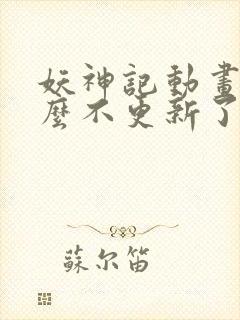 妖神記動畫
麼不更新了
蘇尔笛